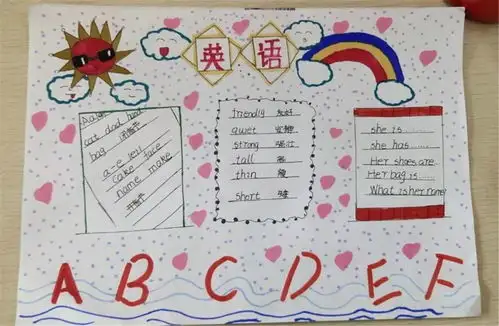 英语
cat dad hand
bag 闭音节
a-e
cake face
name make
开音节
friendly 友好
quiet 安静
strong 强壮
tall 高
thin 瘦
short 矮
she is......
she has......
Her shoes are
Her bag is......
What is her name
A B C D E F